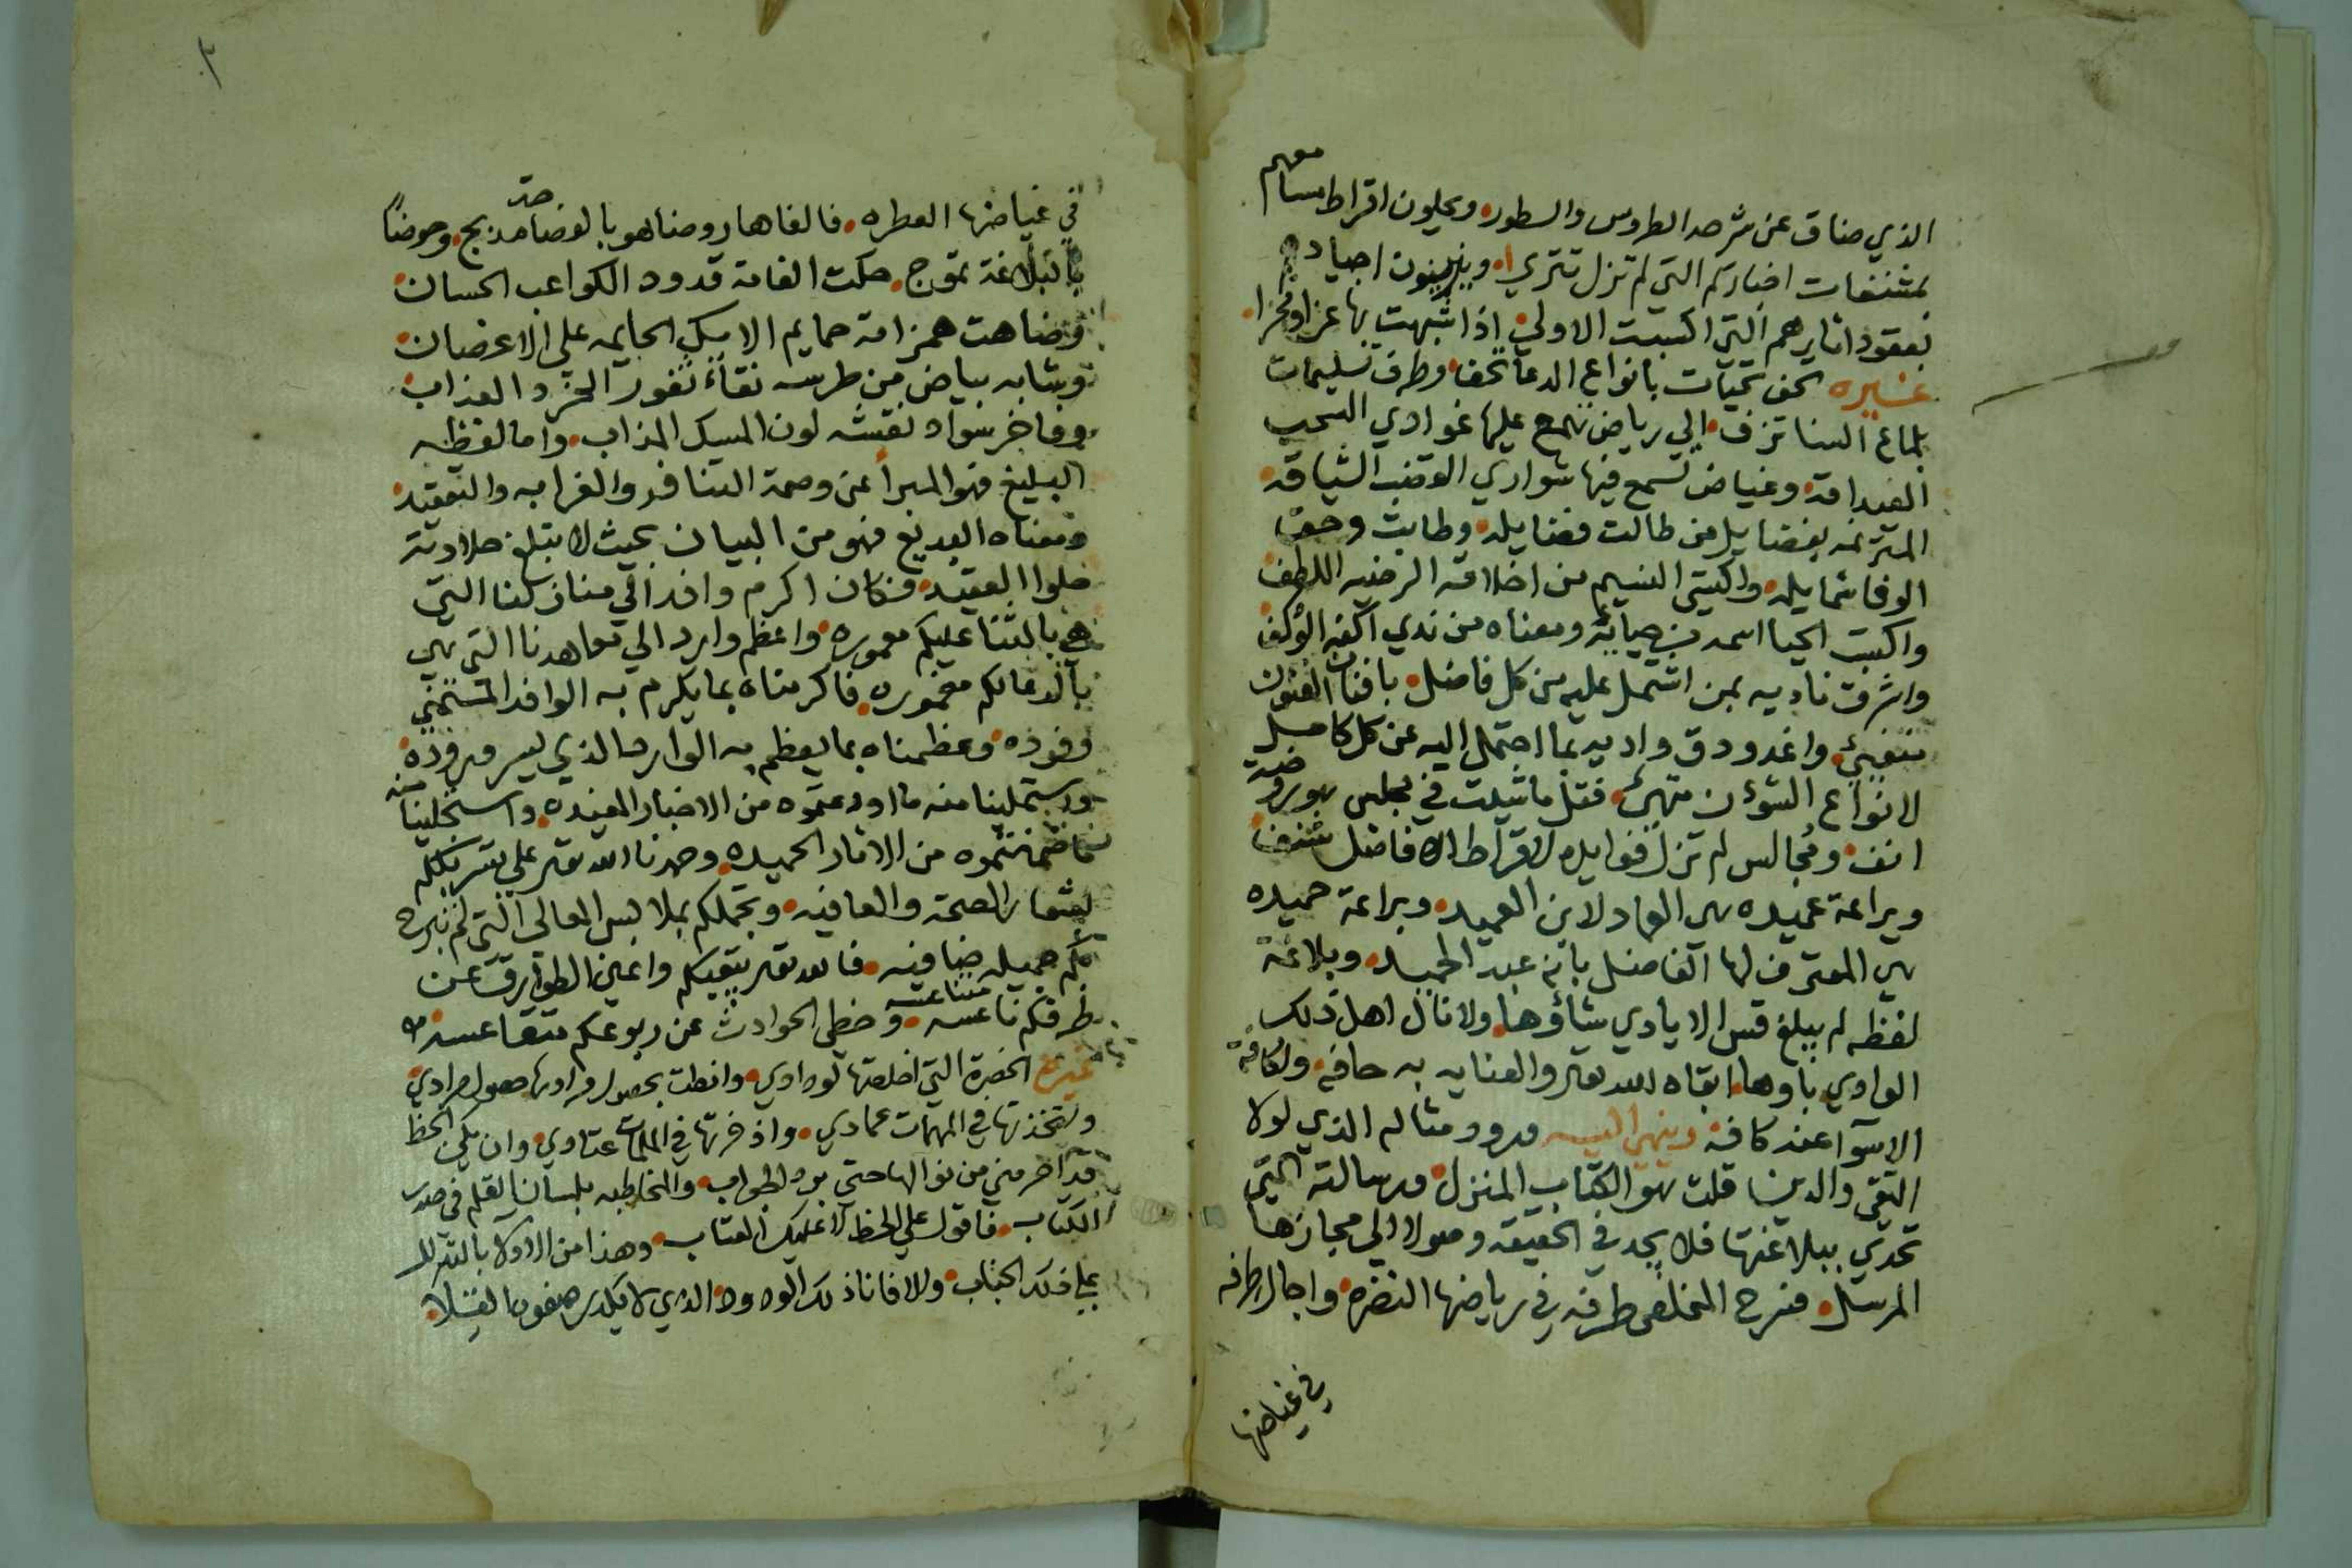 الذي ضاق عن شرحه الطروس والسطور ويحلون اقراط مسامعهم
بمشنفات اخباركم التي لم تزل تتري ويزينون اجيادهم
بعقود اثارهم التي اكسبت الاولي اذا شبهت بها عزا وفخرا
غيره تحف تحيات بانواع الدعا تحف وطرف تسليمات
بلماع السنا تزف الي رياض تهمع عليها غوادي السحب
الغيداقة وغياض تسمع فيها شوادي القضب الشياقة
المترنمه بفضايل من طالت فضايله وطابت وحق
الوفا شمايله واكتسى النسيم من اخلاقه الرضيه اللطف
واكتسب الحيا اسمه من حيائه ومعناه من ندي اكفه الوكف
واشرقت ناديه بمن اشتمل عليه من كل فاضل بافنان الفنون
متفيئ واغدودق واديه بما اجتمل اليه عن كل كامل
لانواع الشؤن متهيئ فتل ما شيلت في مجلس هو روضة
انف ومجالس لم تزل فوايده لاقراط الافاضل شنف
ويراعة عميده هي العاد لابن العميد وبراعة حميده
هي المعترف لها الفاضل بانه عبد الحميد وبلاغة
لفظه لم يبلغ قس الايادي شاؤها ولا نال اهل ذلك
الوادي باوها ابقاه الله تعالى والعنايه به حافه ولكافة
الاسوا عنه كافة وينهي اليه ورود مثاله الذي لولا
التقي والدين قلت هو الكتاب المنزل ورسالته التي
تحدي ببلاغتها فلا يجد في الحقيقه وصولا الي مجازها
المرسل فنرح المخلص طرفه في رياضها النضره واجال طرفه
في غياضها
في غياضها العطره فالفاها روضا هو بالفصاحة مدبج وحوضا
بالبلاغة تموج حكت الفاته قدود الكواعب الحسان
وضاهت همزاته حمايم الايك الحايمه علي الاغصان
وشابه بياض من طرسه نقاء ثغور الخرد العذاب
وفاخر سواد نقشه لون المسك المذاب واما لفظه
البليغ فهو المبرأ عن وصمة التنافر والغرابه والتعقيد
ومعناه البديع فهو من البيان بحيث لا يبلغ حلاوته
حلوا العقيد فكان اكرم وافد الي منازلنا التي
هي بالثنا عليكم معموره واعظم وارد الي معاهدنا التي هي
بالدعا لكم مغموره فاكرمناه بما يكرم به الوافد المتمني
وفوده وعظمناه بما يعظم به الوارد الذي ليسر وروده
واستملينا منه ما اودعتموه من الاخبار المفيده واستجلينا منه
ما ضمنتموه من الاثار الحميده وحمدنا الله تعالى علي تسربلكم
بشعار الصحة والعافيه وتجملكم بملابس المعالي التي لم تبرح
لكم جميله ضافيه فالله تعالى يبقيكم واعين الطوارق عن
طرفكم ناعسه متناعسه وخطي الحوادث عن ربوعكم متقاعسه
غيره الحضرة التي اخلصتها لودادي وانطت بحصول مرادها حصول مرادي
واتخذتها في المهمات عمادي واذخرتها في الملمات عتادي وان يكن الحظ
قد احرمني من نوالها حتي برد الجواب والمخاطبه بلسان القلم في صدر
الكتاب فاقول علي الحظ لا عليك العتاب وهذا من الاولا بالتدلل
علي ذلك الجناب والا فانا ذلك الودود الذي لا يكدر صفو